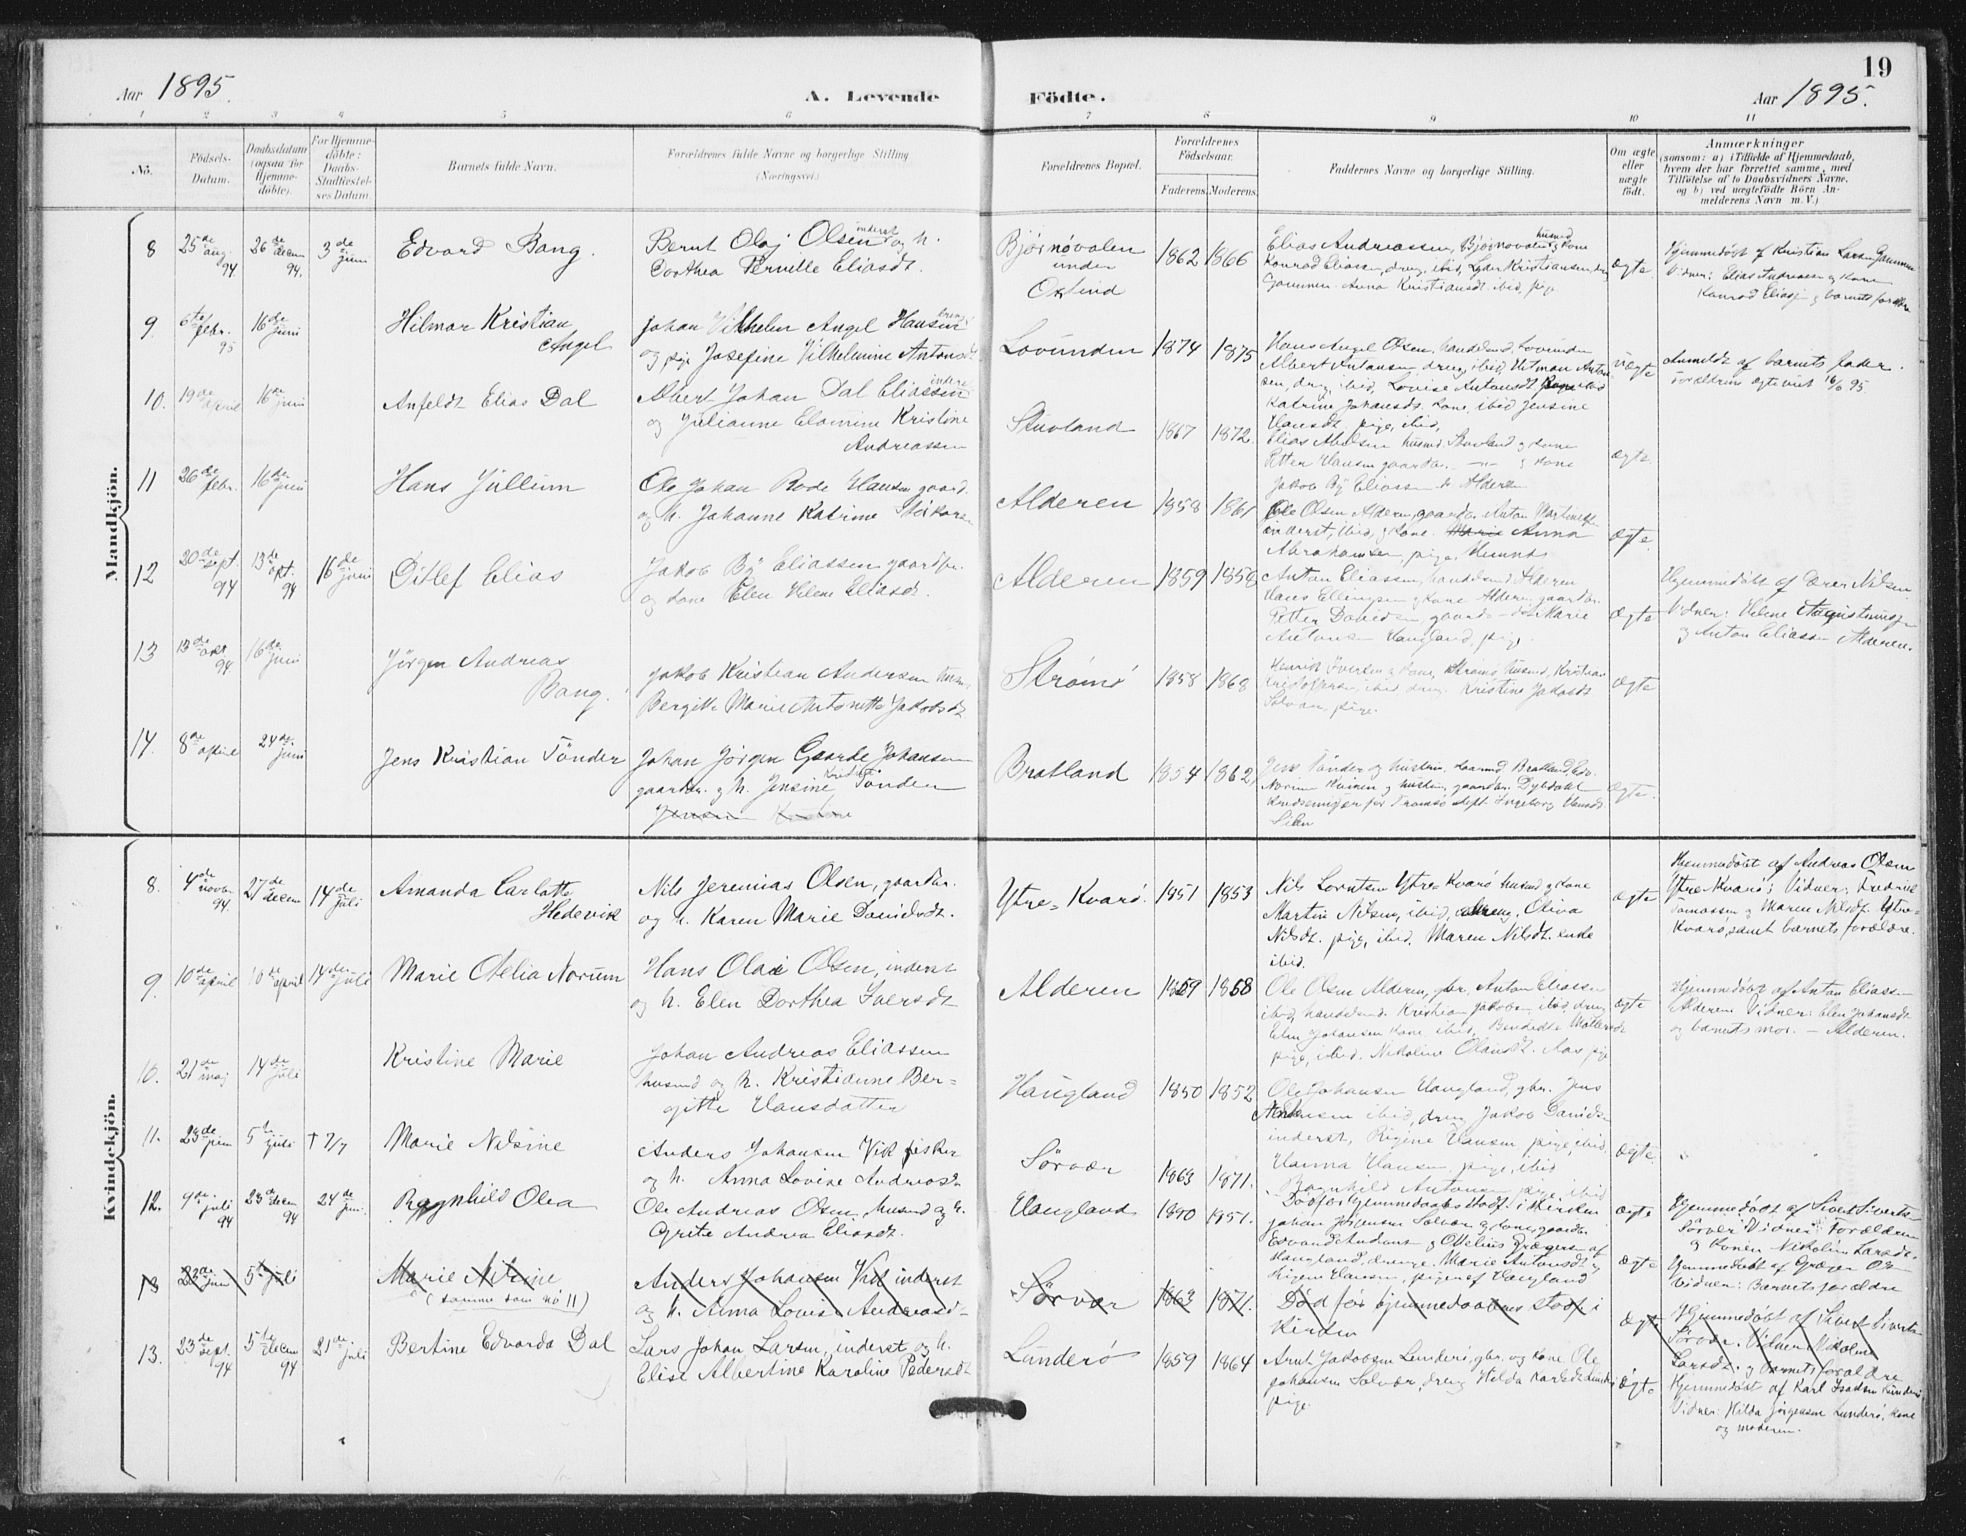 19
Aar 1895.
A. Levende Födte.
Aar 1895.
1 2 3 4 5 6 7 8 9 10 11
No.
Födsels-Datum.
Daabsdatum (ogsaa for Hjemme-döbte).
For Hjemme-döbte: Daabs-Stadfæstel-ses Datum.
Barnets fulde Navn.
Forældrenes fulde Navne og borgerlige Stilling (Næringsvei.)
Forældrenes Bopæl.
Forældrenes Födselsaar.
Faderens. Moderens.
Faddernes Navne og borgerlige Stilling.
Om ægte eller uægte födt.
Anmærkninger
(saasom: a) i Tilfælde af Hjemmedaab, hvem der har forrettet samme, med Tilföielse af to Daabsvidners Navne, og b) ved uægtefödte Börn Anmelderens Navn m. V.)
Mandkjön.
8 25de aug. 94 26de decem 94. 3de juni
Edvard Bang.
Bernt Olaj Olsen inderst og h.
Dorthea Pernille Eliasdt.
Bjørnøvalen
under
Oxtind
1862 1866
Elias Andreassen, Bjørnøvalen husmd. og kone
Konrad Eliassen, dreng, ibid, Kristiansen,
Gammen. Anna Kristiansdt. ibid, pige
ægte.
Hjemmedøbt af Kristian Larsen Gammen
Vidner: Elias Andreassen og kone
Konrad Eliass. og barnets forældre
9. 6te febr. 95 16de juni
Hilmar Kristian
Angel
Johan Vilhelm Angel Hansen
og pige Josefine Vilhelmine Antonsdt.
Lovunden
1874 1875
Hans Angel Olsen, handelsmd. Lovunden
Albert Antonsen dreng ibid,
dreng ibid, Lovise Antonsdt
Katrine Johansdt. kone, ibid Jensine
Hansdt. pige, ibid,
uægte
Anmeldt af barnets fader.
Forældrene ægteviet 16/6 95.
10. 19de april 16de juni
Anfeldt Elias Dal
Albert Johan Dal Eliassen
og Julianne Elomine Kristine
Andreassen
Stuvland
1867 1872.
Elias husmd. Stuvland og kone
Petter Hansen gaardbr. — " — og kone
Jakob By Eliassen Alderen
ægte.
11 26de febr. 16de juni
Hans Jullum
Ole Johan Rode Hansen gaard.
og h. Johanne Katrine
Alderen
1858 1861
Ole Olsen Alderen, gaardbr. Anton
inderst, ibid, og kone. Marie Anna
Abrahamsen, pige,
ægte.
12 20de sept. 94 13de okt. 94 16de juni
Ditlef Elias
Jakob By Eliassen gaardbr.
og kone Elen Helene Eliasdt.
Alderen
1859 1858
Anton Eliassen, handelsmd. Alderen
Hans Ellingsen og kone Alderen, gaardbr.
Petter Davidsen, gaard Marie
Antonsen Haugland, pige
ægte
Hjemmedøbt af Nilsen.
Vidner: Helene
og Anton Eliassen Alderen.
13 13de okt 94 16de juni
Jørgen Andreas
Bang.
Jakob Kristian Andersen husm.
Bergitte Marie Antonette Jakobsdt.
Strømø
1858 1868
Henrik Iversen og kone, Strømø, husmd, Kristian
Kristoffersen, ibid, dreng. Kristine Jakobsdt
Solvær, pige.
ægte
14. 8de april 24de juni
Jens Kristian Tönder
Johan Jørgen Gaarde Johansen
gaardbr. og h. Jensine Kristine Tönder
Jensine Kristine
Bratland
1854 1862
Jens Tönder og hustru, Bratland,
og hustru, gaardbr. Dybdahl
for Tromsø stift Ingeborg Hansdt.
ægte.
Kvindekjön.
8. 4de novbr. 94 27de decem 14de juli
Amanda Carlotte
Hedevik
Nils Jeremias Olsen, gaardbr.
og h. Karen Marie Davidsdt.
Ytre-Kvarø.
1851 1853
Nils Lorntsen Ytre-Kvarø husmd og kone
Martin Nilsen, ibid, dreng, Oliva
Nilsdt. pige, ibid, Maren Nilsdt. enke
ibid.
ægte
Hjemmedøbt af Andreas Olsen
Ytre-Kvarø; Vidner: Fredrik
Tomassen og Maren Nilsdt. Ytre-
Kvarø, samt barnets forældre.
9. 10de april 10de april 14de juli
Marie Otelia Norum
Hans Olai Olsen, inderst
og h. Elen Dorthea Iversdt
Alderen
1859 1858
Ole Olsen Alderen, gbr. Anton Eliassen
ibid, handelsmd. Kristian Jakobs. ibid, dreng
Elen Johansen kone ibid, Benedikte
pige, ibid. Nikoline Olausdt. Aas pige
ægte
Hjemmedøbt af Anton Eliassen
Alderen Vidner: Elen Johansdt
og barnets mor. — Alderen.
10. 21de maj 14de juli
Kristine Marie
Johan Andreas Eliassen
husmd og h. Kristianne Ber-
gitte Hansdatter
Haugland
1850 1852
Ole Johansen Haugland, gbr. Jens
ibid, dreng, Jakob Davids.
inderst, Regine Hansen, pige, ibid
Hanna Hansen, pige, ibid
Ragnhild Antonsen, pige, ibid
ægte.
11. 23de juni 5te juli † 7/7
Marie Nilsine
Anders Johansen Vik fisker
og h. Anna Lovise Andreasdt.
Sørvær
1863 1871.
Død før hjemmedaabens stadf. i kirken
12. 4de juli 94 23de decem 94 24de juni.
Ragnhild Olea
Ole Andreas Olsen, husmd og h.
Grete Andrea Eliasdt.
Haugland
1851.
Johan Jørgensen Solvær og kone, gaardbr.
Edvard og Ottelius af
Haugland, drenge, Marie Antonsdt og
Regine Hansen, piger af Haugland
ægte
Hjemmedøbt af Sivert Siverts.
Sørvær: Vidner: Forældrene
og konen Nikoline Larsdt.
ægte
Hjemmedøbt af
Vidner: Barnets forældre
13 23de juni 5te juli
Marie Nilsine
(samme som nö 11)
Anders Johansen Vik inderst
og h. Anna Lovise Andreasd-
Sørvær
1863 1871.
Død før hjemmedaabens stadf. i
kirken
ægte
Hjemmedøbt af Sivert Siverts.
Sørvær. Vidner: Nikoline
Larsdt. og barnets forældre
13. 23de sept. 94 5te decem 94 21de juli
Bertine Edvarda Dal
Lars Johan Larsen, inderst og h.
Elise Albertine Karoline Pedersdt
Lunderø
1859 1864
Arnt Jakobsen Lunderø, gbr. og kone, Ole
Johansen Solvær, dreng Hilda
pige.
ægte
Hjemmedøbt af Karl Lunderø
Vidner: Hilda Jørgensen Lunderø, kone
og moderen.